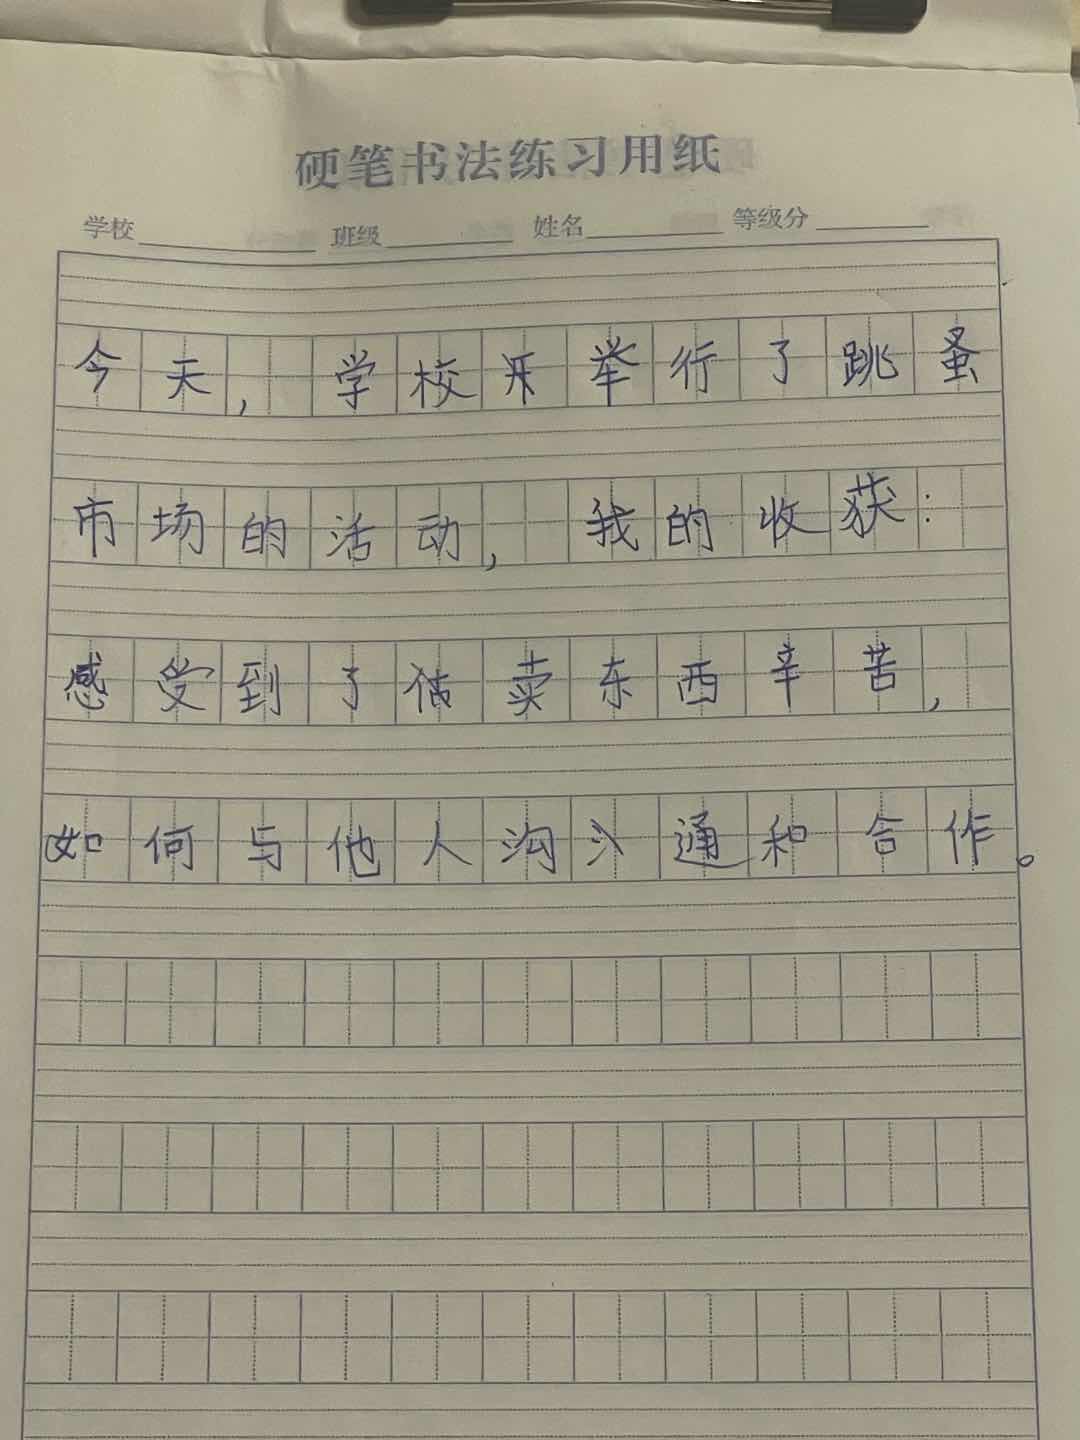 硬笔书法练习用纸
学校 班级 姓名 等级分
今天,学校举行了跳蚤
市场的活动,我的收获:
感受到了估卖东西辛苦,
如何与他人沟通和合作。